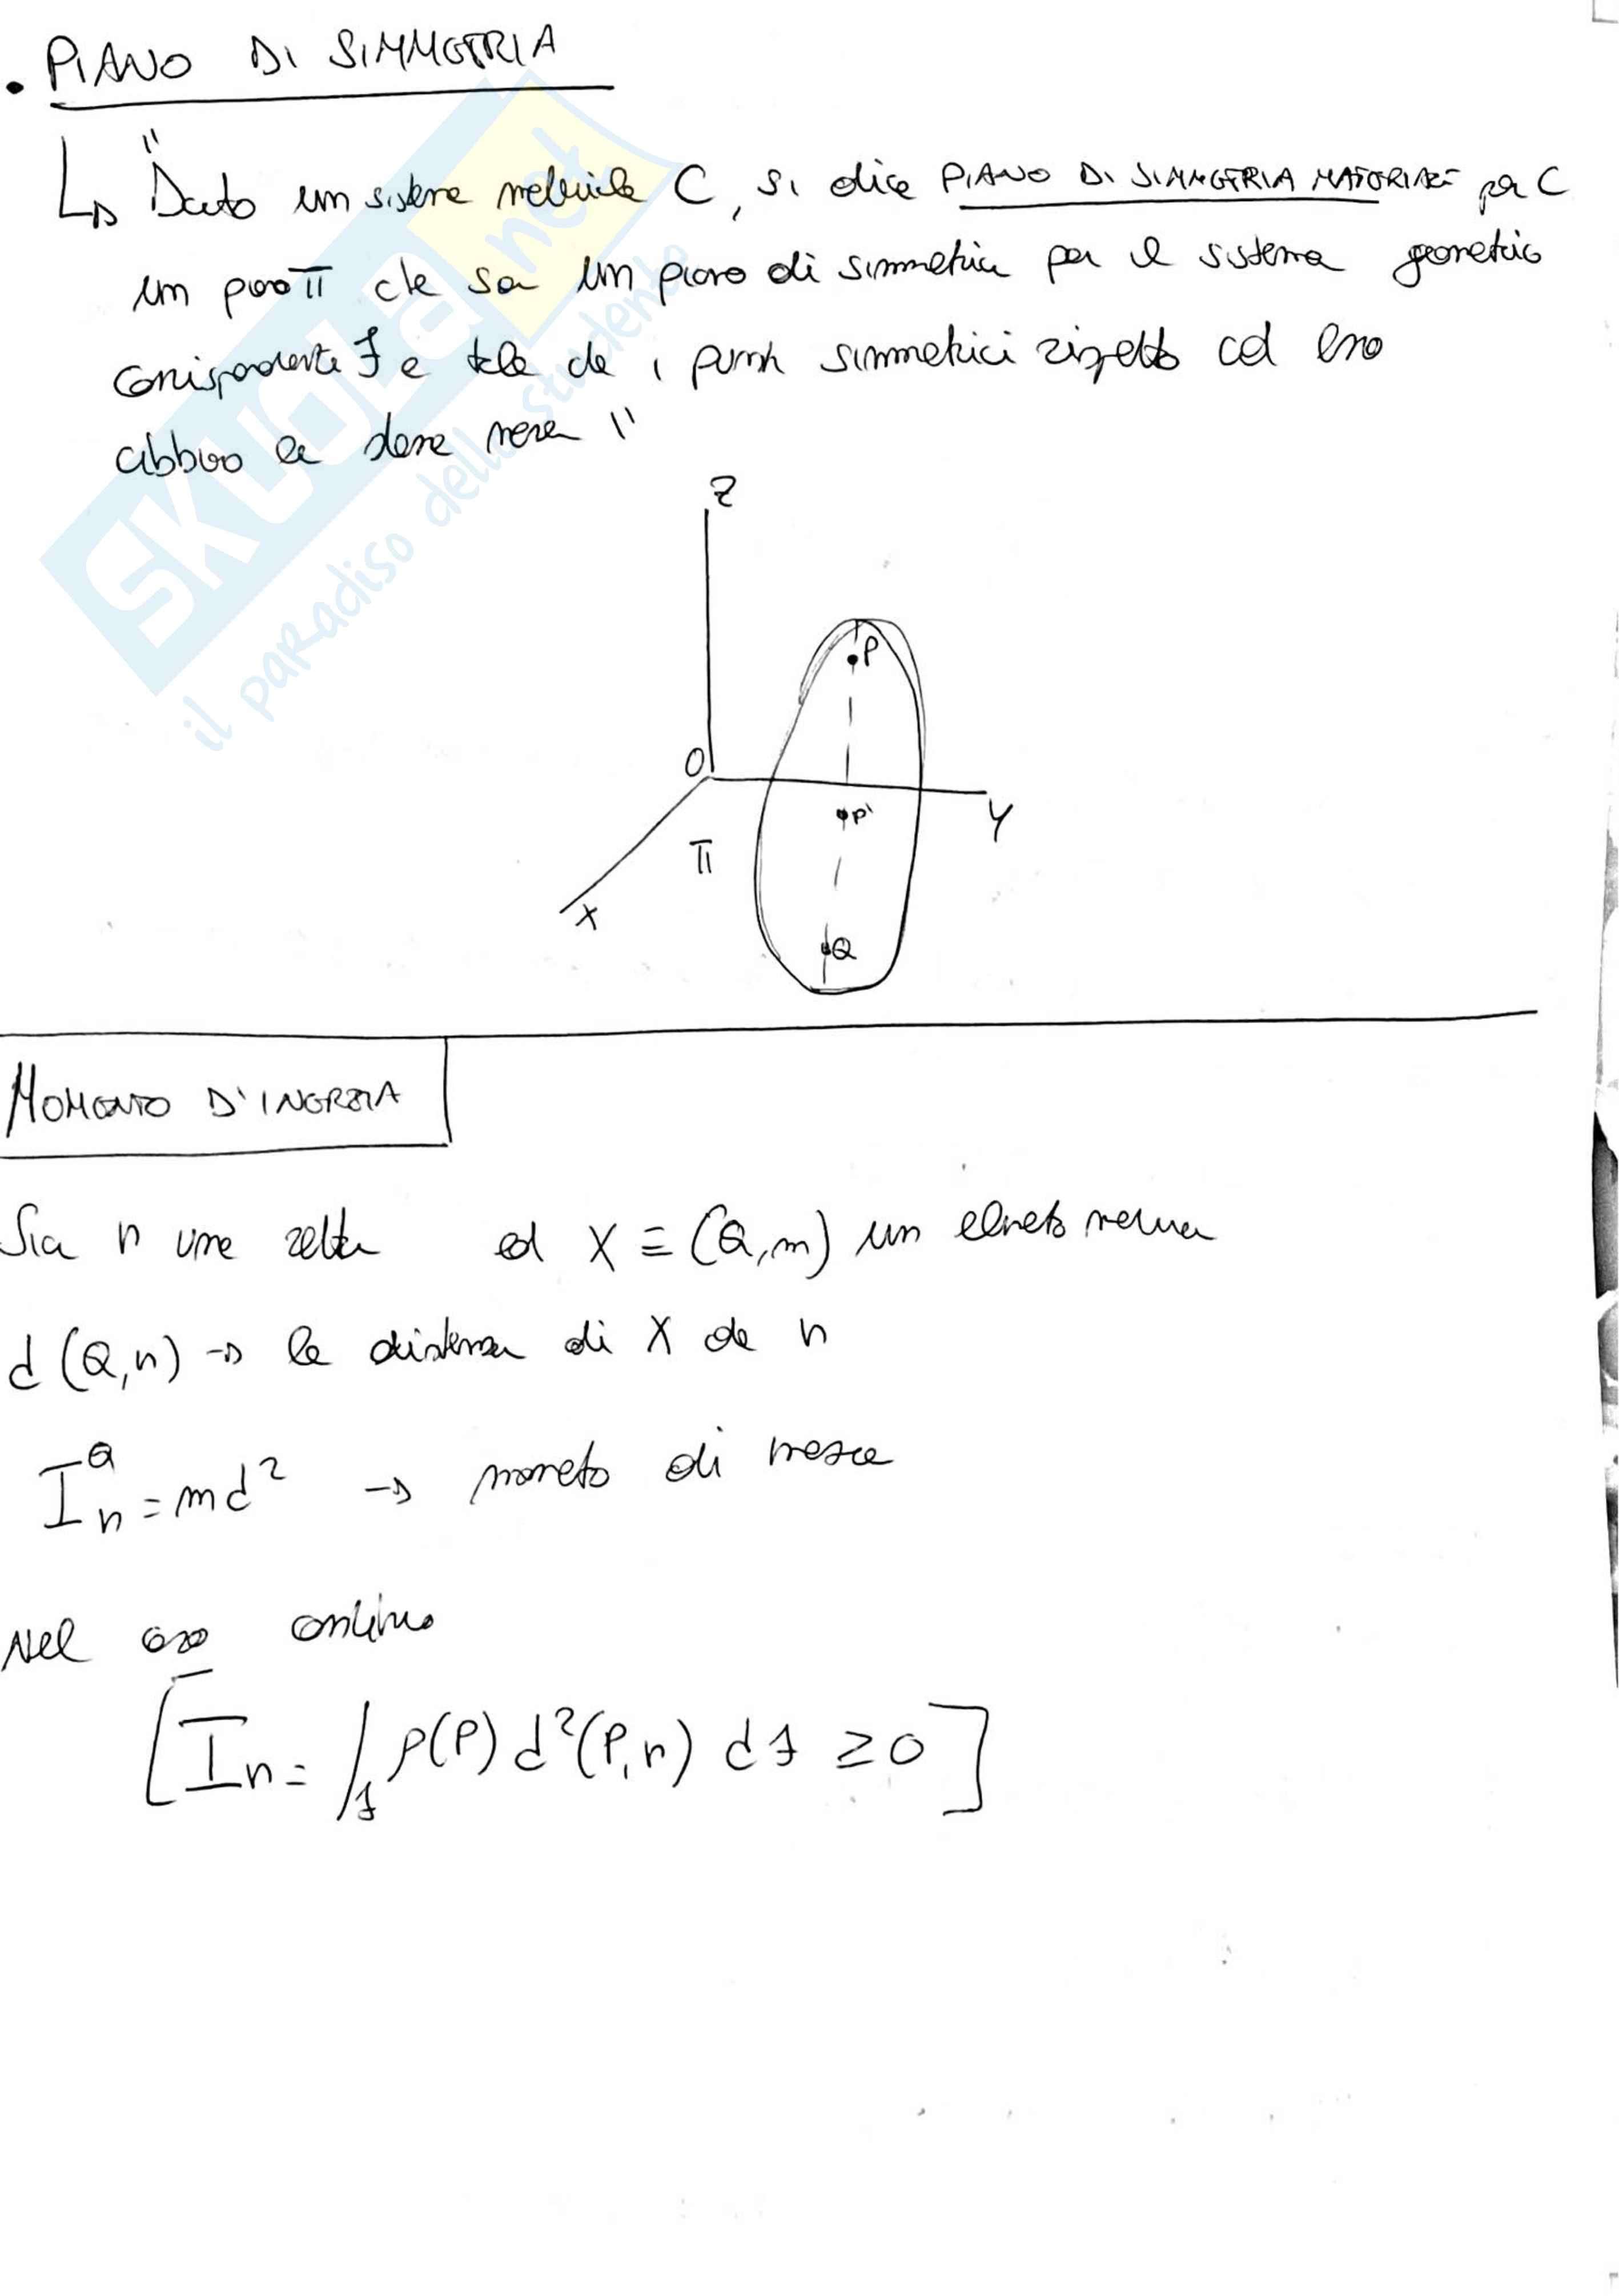 • PIANO DI SIMMETRIA
"Dato un sistema materiale C, si dice PIANO DI SIMMETRIA MATERIALE per C
un piano π che sia un piano di simmetria per il sistema geometrico
corrispondente f e tale che i punti simmetrici rispetto ad esso
abbiano la stessa massa"
SKUOLA.net
il paradiso dello studente
Z
P
O
P'
Y
π
X
Q
MOMENTO D'INERZIA
Sia n una retta ed X ≡ (Q,m) un elemento materiale
d(Q,n) → la distanza di X da n
I_n^Q = md² → momento di massa
Nel caso continuo
[I_n = ∫_f ρ(P) d²(P,n) df ≥ 0]